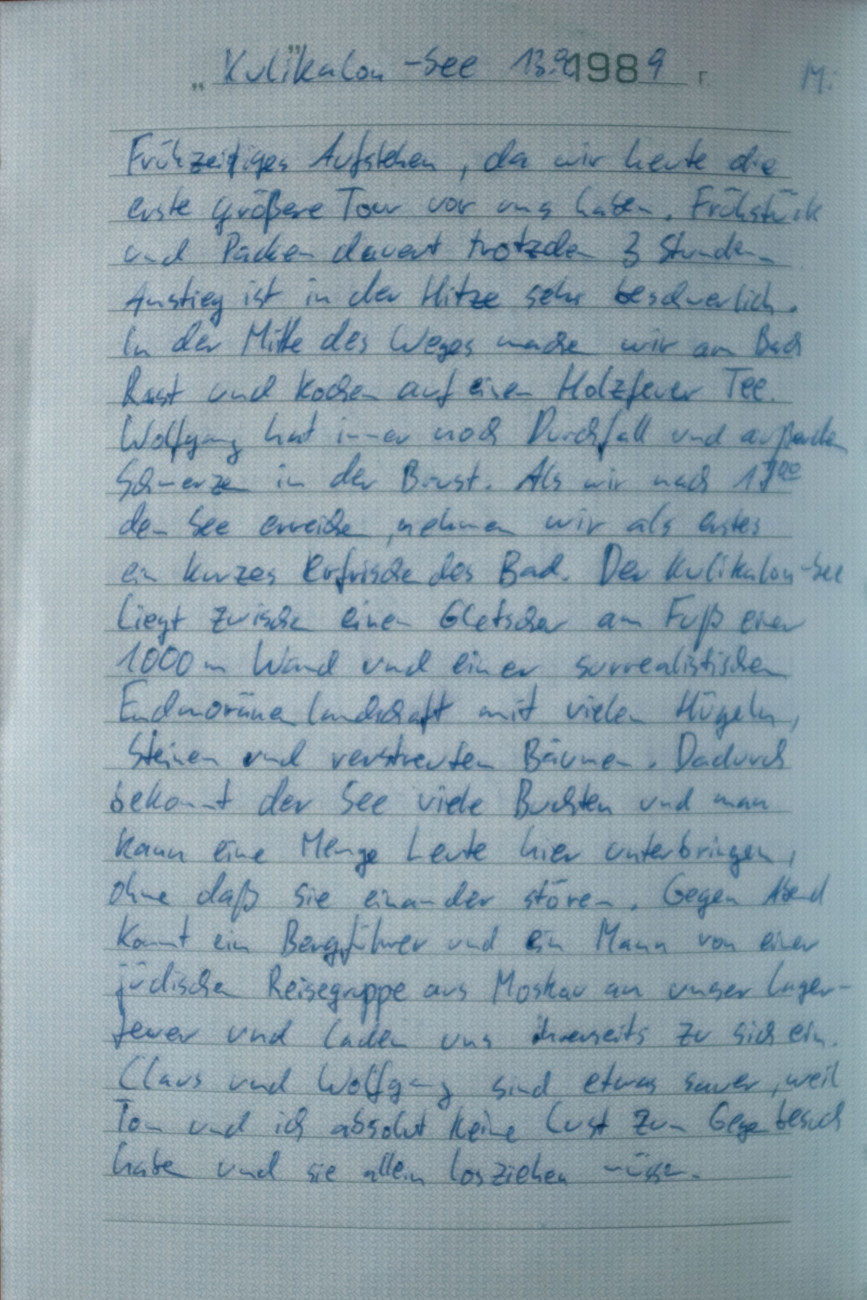 „Kulikalon"-See 13.9. 1989 г. M.
Frühzeitiges Aufstehen, da wir heute die
erste größere Tour vor uns haben. Frühstück
und Packen dauert trotzdem 3 Stunden
Anstieg ist in der Hitze sehr beschwerlich.
In der Mitte des Weges machen wir am Bach
Rast und kochen auf einem Holzfeuer Tee.
Wolfgang hat immer noch Durchfall und außerdem
Schmerzen in der Brust. Als wir nach
den See erreichen, nehmen wir als erstes
ein kurzes erfrischendes Bad. Der Kulikalon-See
liegt zwischen einem Gletscher am Fuß einer
1000 m Wand und einer surrealistischen
Endmoränenlandschaft mit vielen Hügeln,
Steinen und verstreuten Bäumen. Dadurch
bekommt der See viele Buchten und man
kann eine Menge Leute hier unterbringen,
ohne daß sie einander stören. Gegen Abend
kommt ein Bergführer und ein Mann von einer
jüdischen Reisegruppe aus Moskau an unser Lager-
feuer und laden uns ihrerseits zu sich ein.
Claus und Wolfgang sind etwas sauer, weil
Tom und ich absolut keine Lust zum Gegenbesuch
haben und sie allein losziehen müssen.